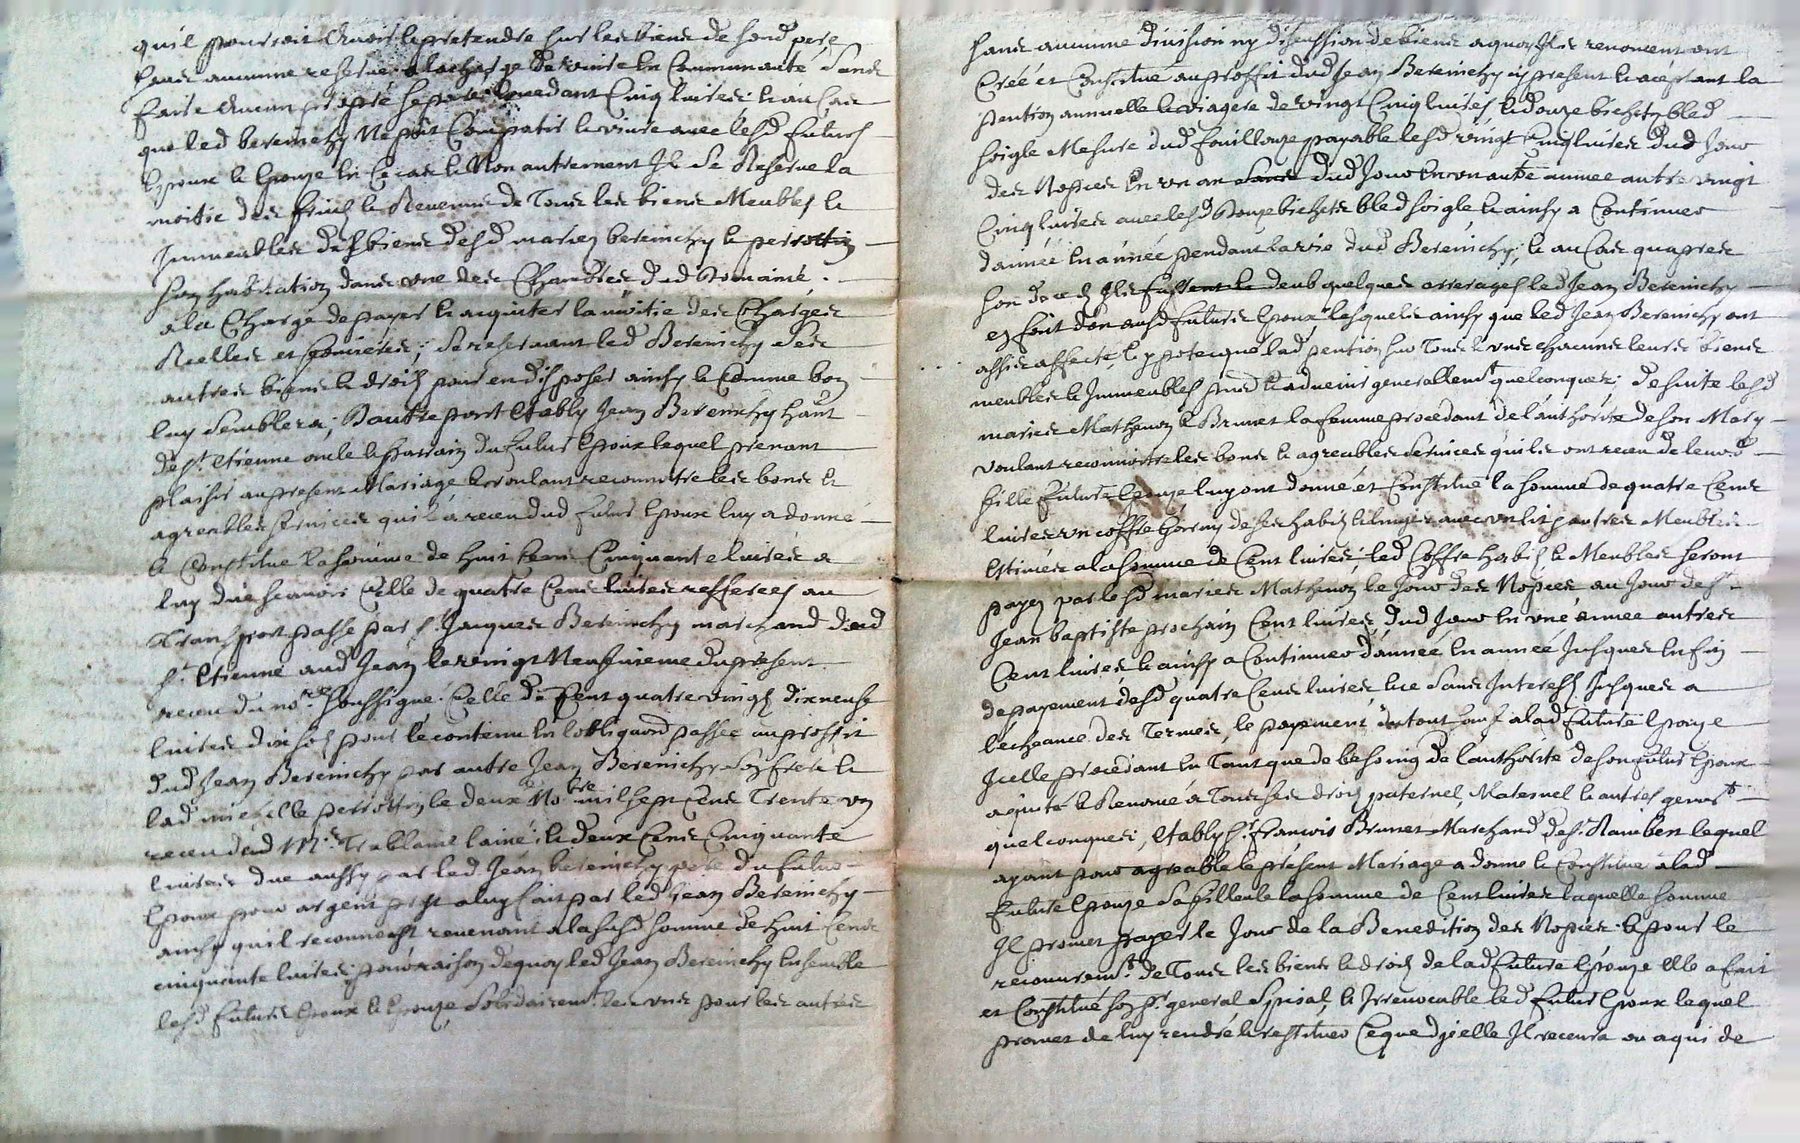 quil pourroit avoir et pretendre sur les biens de sond pere
sans aucune reserve a la charge de vivre en Communauté sans
faire aucun propre separé pendant Cinq luires et au Cas
que led berenichy ne pût Compatir et vivre avec lesd futurs
Epoux et Epouze en ce cas et Non autrement Il se Reserve la
moitie des fruicts et Revenus de Tous les biens Meubles et
Immeubles desbiens desd mariez berenichy et perrottin
son habitation dans une des Chambres dud domaine
a la Charge de payer et aquiter la moitie des Charges
Reelles et foncieres; se reservant led Berenichy ses
autres biens et droits pour en disposer ainsy et Comme bon
luy semblera; Dautre part Etably Jean Berenichy hant
de St. Etienne oncle et parrain du futur Epoux lequel prenant
plaisir au present Mariage et voulant reconnoitre les bons et
agreables services quil a receu dud futur Epoux luy a donné
et Constitue la somme de huit Cens Cinquante luires a
luy due scavoir Celle de quatre Cens luires refferees au
transport passe par sr. Jacques Berenichy marchand dud
St. Etienne aud Jean le vingt Neufuieme du present
receu du nore. soussigné. Celle de Cent quatre vingts dix neuf
luires dix sols pour le contenu en lobligaon passee au proffit
dud Jean Berenichy par autre Jean Berenichy son frere et
lad michelle perrottin le deux Nobre mil sept Cens Trente un
receu dud Mr. Trablaine laine; et deux Cens Cinquante
luires due aussy par led Jean berenichy pere du futur
Epoux pour argent prest a luy fait par led Jean Berenichy
ainsy quil reconnoist revenant a la susd somme de huit Cens
cinquante luires; pour raison dequoy led Jean Berenichy Ensemble
lesd futurs Epoux et Epouze solidairemt. les uns pour les autres
sans aucune division ny discussion de biens a quoy Ils renoncent ont
Créé et Constitué au proffit dud Jean Berenichy cy present et aceptant la
pention annuelle et viagere de vingt Cinq luires et douze bichets bled
soigle Mesure dud fouillouze payable lesd vingt Cinq luires dud Jour
des Nopces en un an dud Jour en un autre annee autre vingt
Cinq luires avec lesd Douze bichets bled soigle et ainsy a Continuer
dannée en année pendant la vie dud Berenichy; et au Cas quapres
son deceds Ils fussent deub quelques arrerages led Jean Berenichy
en fait don ausd futurs Epoux lesquels ainsy que led Jean Berenichy ont
assis affecté et ypotequé lad pention sur Tous et uns chacuns leurs biens
meubles et Immeubles pnts et advenir generallemt. quelconques; de suite lesd
mariés Mathevon et Brunet la femme procedant de lauthorite de son Mary
voulant reconnoitre les bons et agreables services quils ont receu de leurd
fille future Epouze luy ont donné et Constitué la somme de quatre Cens
luires un coffre garny de ses habits et linges avec un lit et autres Meubles
Estimés a la somme de Cent luires; led Coffre habits et Meubles seront
payes par lesd mariés Mathevon le Jour des Nopces au Jour de St.
Jean baptiste prochain Cent luires, dud Jour en une annee autres
Cent luires et ainsy a Continuer dannée en année Jusques en fin
de payement desd quatre Cens luires et ce sans Interests Jusques a
lecheance des Termes, le payement du tout fait a lad future Epouze
Icelle procedant en Tant que de besoing de lauthorite de son futur Epoux
aquité et Renoncé a Tous ses droits paternel, Maternel et autres generts.
quelconques; Etably sr. francois Brunet Marchand de St. Rambert lequel
ayant pour agreable le présent Mariage a donné et Constitué a lad
future Epouze sa filleule la somme de Cent luires laquelle somme
Il promet payer le Jour de la Benediction des Nopces. et pour le
recouvremt. de Tous les biens et droits de lad future Epouze Elle a fait
et Constitué son pr. general special, et Irrevocable led futur Epoux lequel
promet de luy rendre et restituer Ce que dicelle Il recevra ou a qui de